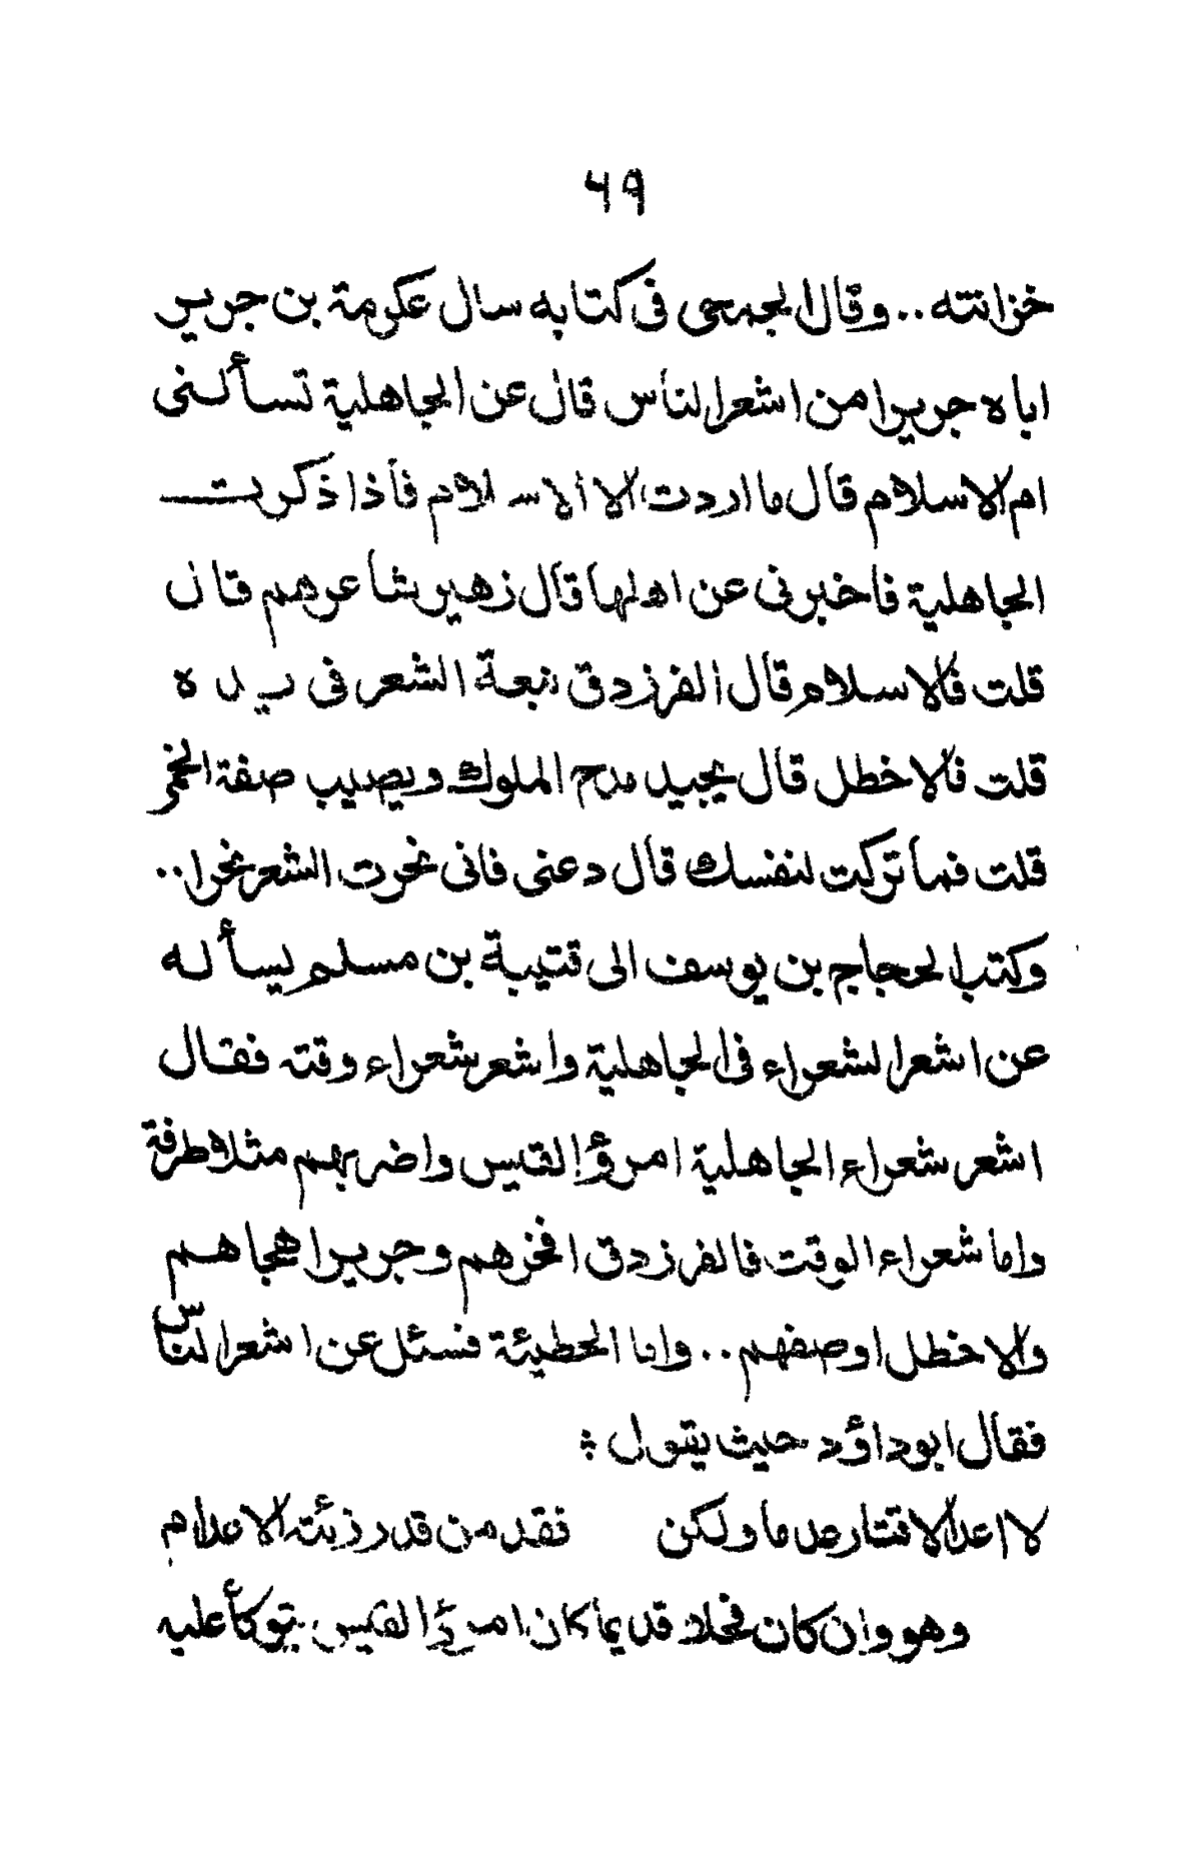 ٤٩
خزانته .. وقال الجمحى فى كتابه سال عكرمة بن جرير
اباه جريرا من اشعر الناس قال عن الجاهلية تسألنى
ام الاسلام قال ما اردت الا الاسلام فاذا ذكرت
الجاهلية فاخبرنى عن اهلها قال زهير شاعرهم قال
قلت فالاسلام قال الفرزدق نبعة الشعر فى يده
قلت فالاخطل قال يجيد مدح الملوك ويصيب صفة الخمر
قلت فما تركت لنفسك قال دعنى فانى نحرت الشعر نحرا ..
وكتب الحجاج بن يوسف الى قتيبة بن مسلم يسأله
عن اشعر الشعراء فى الجاهلية واشعر شعراء وقته فقال
اشعر شعراء الجاهلية امرؤ القيس واضربهم مثلا طرفة
واما شعراء الوقت فالفرزدق افخرهم وجرير اهجاهم
والاخطل اوصفهم .. واما الحطيئة فسئل عن اشعر الناس
فقال ابو داؤد حيث يقول :
لا اعد الاقتار عدما ولكن فقد من قد رزئته الاعدام
وهو وان كان فحلا قديما كان امرؤ القيس يتوكأ عليه